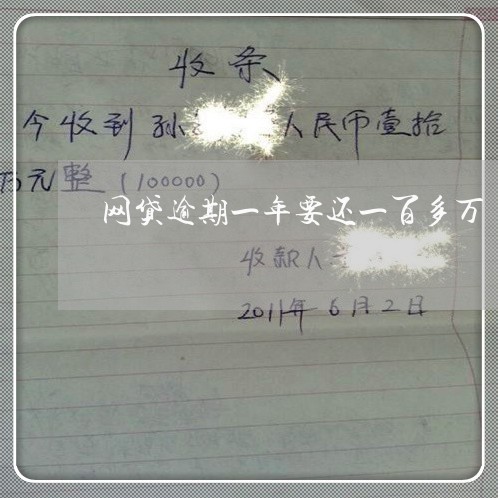 收条
今收到孙 人民币壹拾
万元整(100000)
网贷逾期一年要还一百多万
收款人
2011年6月2日